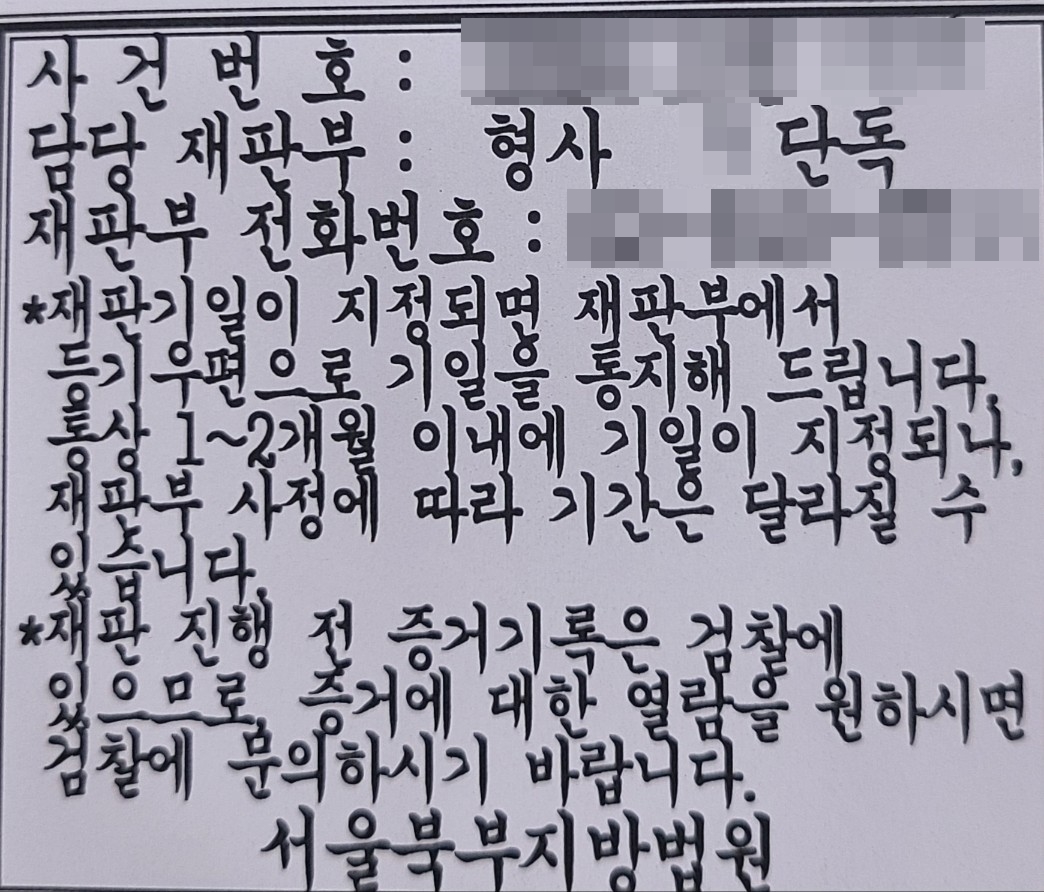 사 건 번 호 :
담당 재판부 : 형사 단독
재판부 전화번호 :
*재판기일이 지정되면 재판부에서
등기우편으로 기일을 통지해 드립니다.
통상 1~2개월 이내에 기일이 지정되나,
재판부 사정에 따라 기간은 달라질 수
있습니다.
*재판 진행 전 증거기록은 검찰에
있으므로, 증거에 대한 열람을 원하시면
검찰에 문의하시기 바랍니다.
서울북부지방법원